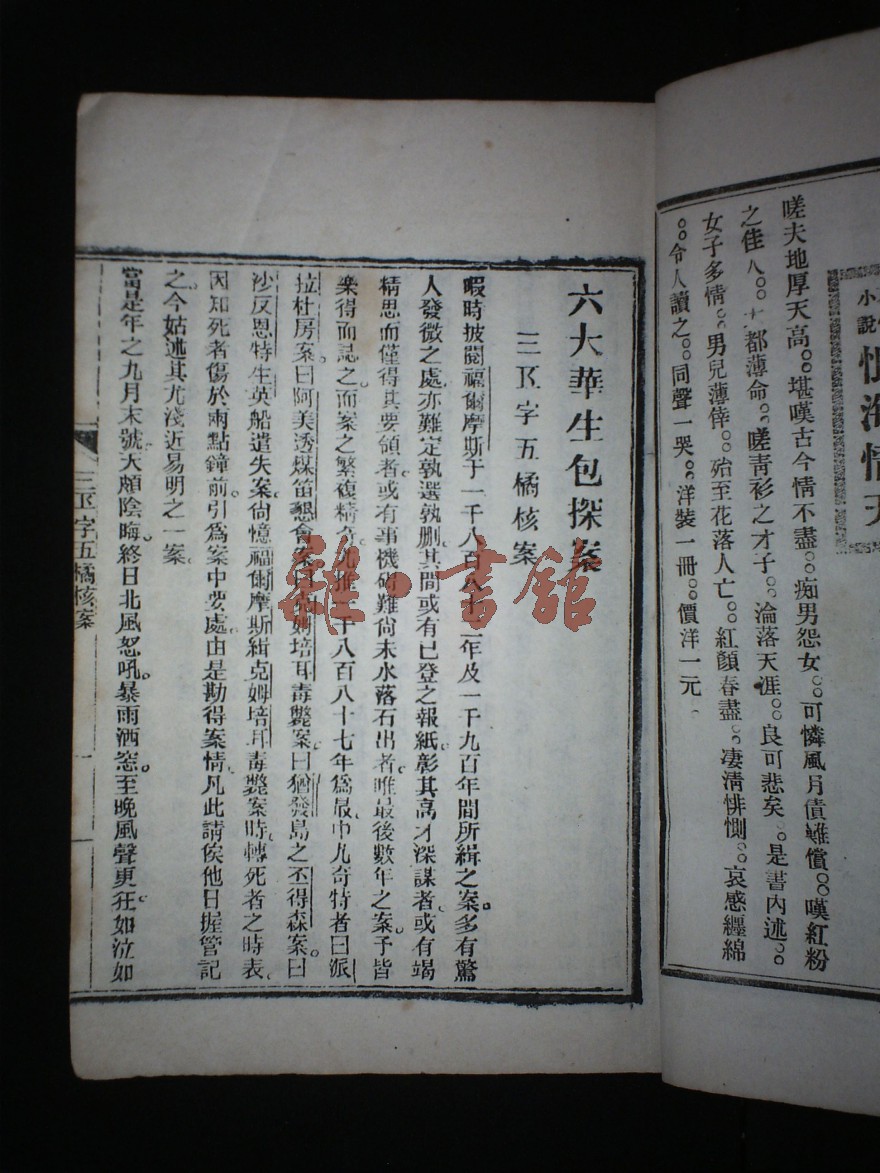 小說
恨海情天
嗟夫地厚天高。。堪嘆古今情不盡。。痴男怨女。。可憐風月債難償。。嘆紅粉
之佳人。。大都薄命。。嗟靑衫之才子。。淪落天涯。。良可悲矣。。是書內述。。
女子多情。。男兒薄倖。。殆至花落人亡。。紅顏春盡。。凄淸悱惻。。哀感纏綿
。。令人讀之。。同聲一哭。。洋裝一冊。。價洋一元
六大華生包探案
三K字五橘核案
暇時披閱福爾摩斯于一千八百八十二年及一千九百年間所緝之案。多有驚
人發微之處。亦難定孰選孰删。其間或有已登之報紙。彰其高才深謀者。或有竭
精思而僅得其要領者。或有事機磡難。尙未水落石出者。唯最後數年之案。予皆
樂得而誌之。而案之繁複精奇。尤推一千八百八十七年爲最。中尤奇特者曰派
拉杜房案。曰阿美透煤笛懇會案。曰克姆培耳毒斃案。曰猶發島之丕得森案。曰
沙反恩特生英船遺失案。尙憶福爾摩斯緝克姆培耳毒斃案時。轉死者之時表。
因知死者傷於兩點鐘前。引爲案中要處。由是勘得案情。凡此請俟他日握管記
之。今姑述其尤淺近易明之一案。
當是年之九月末號。天頗陰晦。終日北風怒吼。暴雨洒窓。至晚風聲更狂。如泣如
三K字五橘核案
一
雜·書館